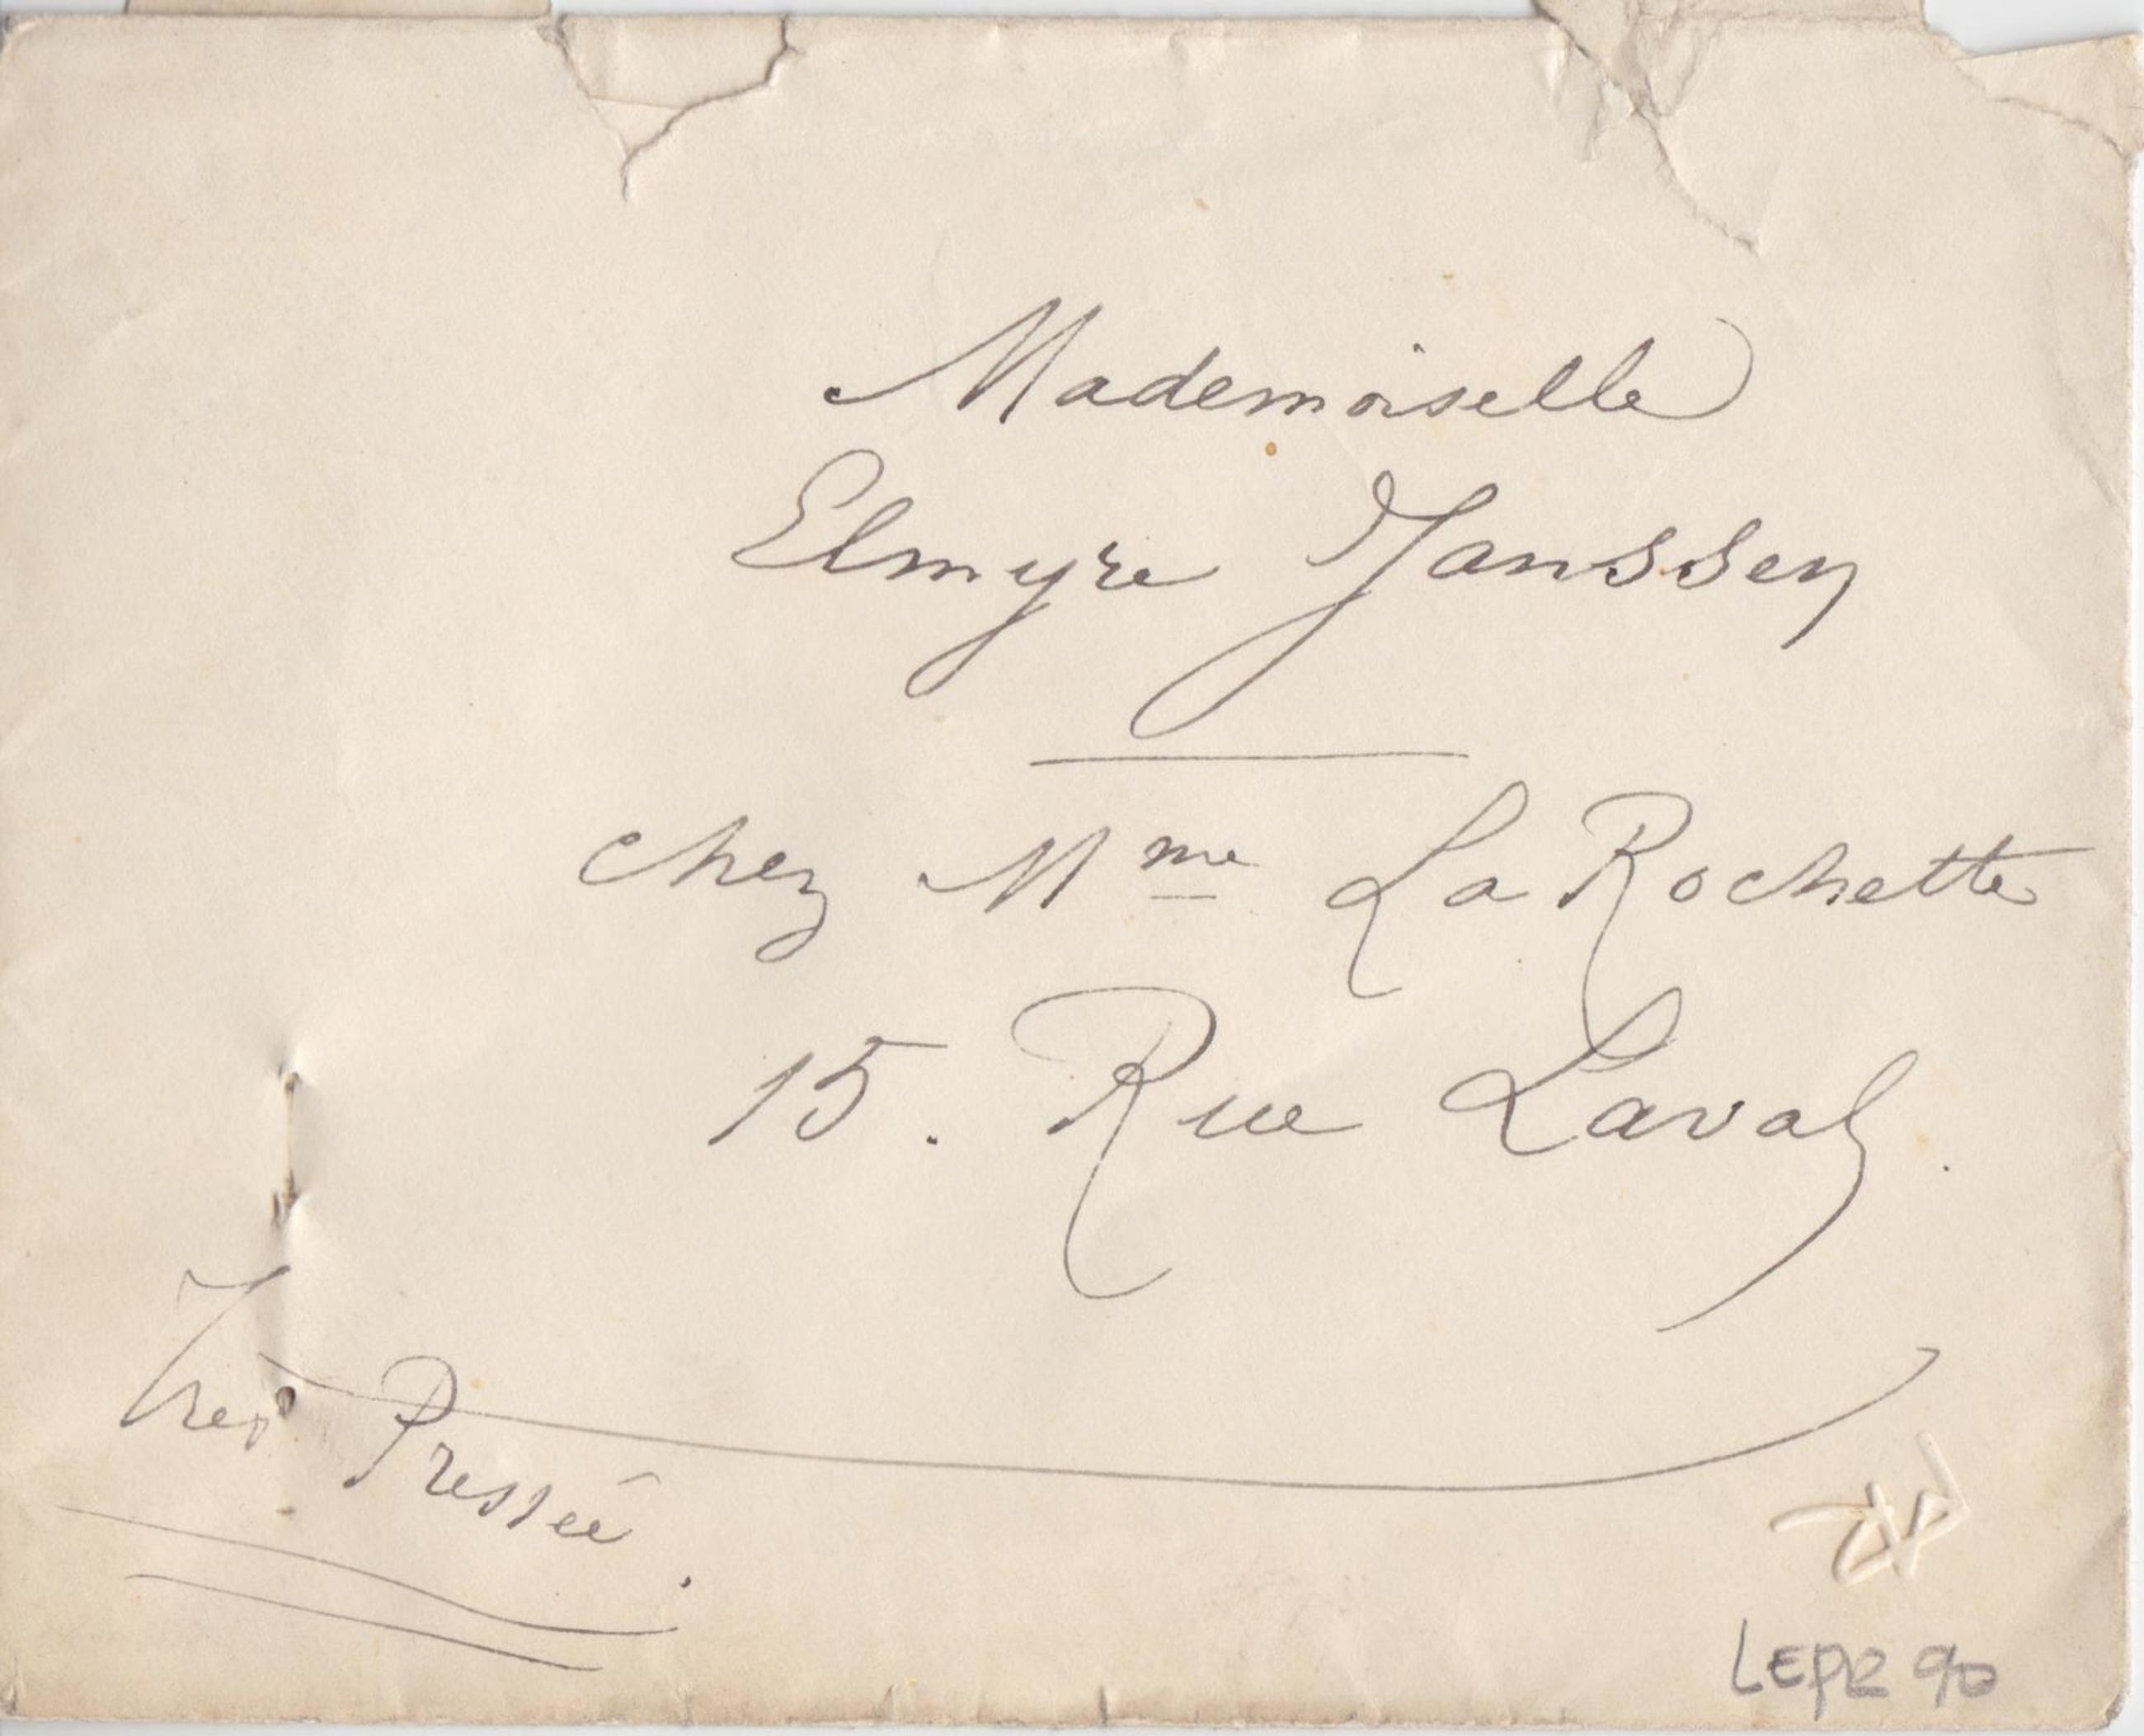 Mademoiselle
Elmyre Janssen
chez Mme La Rochette
15. Rue Laval.
Très Pressée.
LEPR 90